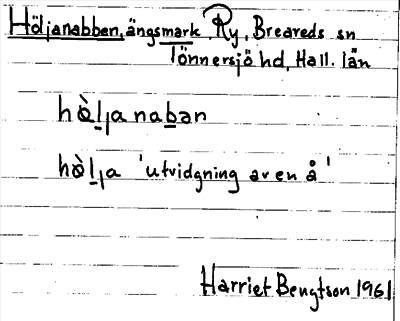 Höljanabben, ängsmark Ry, Breareds sn
Tönnersjö hd, Hall. län
hòl̠ja nab̠ən
hòl̠ja 'utvidgning av en å'
Harriet Bengtson 1961